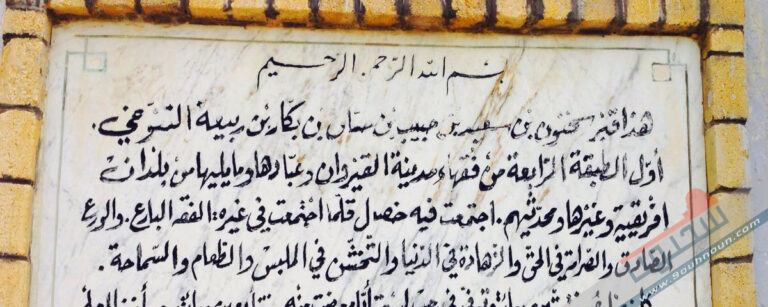 بسم الله الرحمن الرحيم
هذا قبر سحنون بن سعيد بن حبيب بن حسان بن بكار بن ربيعة التنوخي.
أوّل الطبقة الرّابعة من فقهاء مدينة القيروان وعبّادها وما يليها من بلدان
افريقيية وغيرها ومحدثيهم. اجتمعت فيه خصال قلّما اجتمعت في غيره: الفقه البارع. والورع
الصّادق والصّرامة في الحق والزّهادة في الدّنيا والتخشّن في الملبس والطّعام والسّماحة.
سحنون
www.souhnoun.com